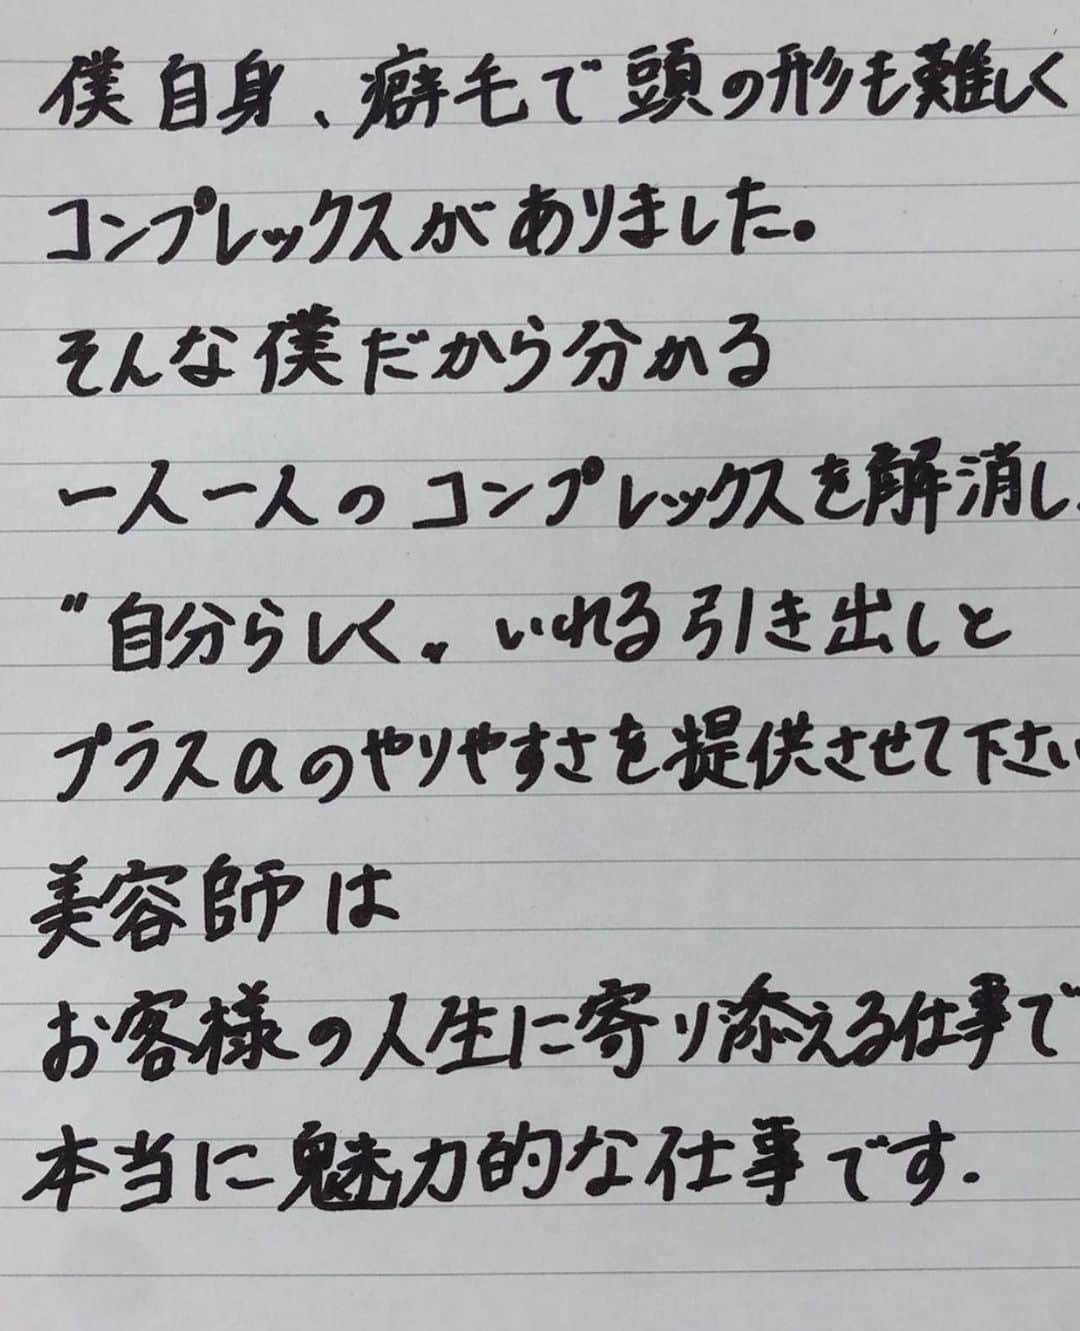 僕自身、癖毛で頭の形も難しく
コンプレックスがありました。
そんな僕だから分かる
一人一人のコンプレックスを解消し、
〝自分らしく〟いれる引き出しと
プラスαのやりやすさを提供させて下さい
美容師は
お客様の人生に寄り添える仕事で
本当に魅力的な仕事です.